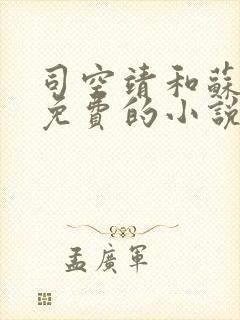 司空靖和蘇
免費的小說
孟廣軍